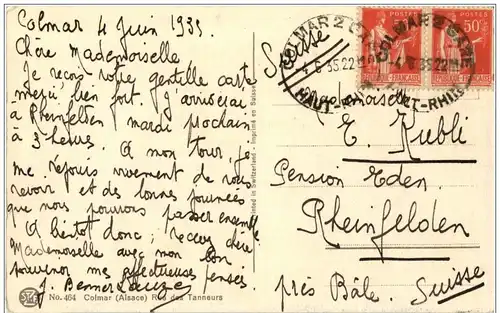 Colmar 4 Juin 1935.
Chère Mademoiselle
Je reçois votre gentille carte
merci bien fort. J'arriverai
à Rheinfelden mardi prochain
à 3 heures. A mon tour, je
me réjouis vivement de vous
revoir et des bonnes journées
que nous pouvons passer ensemble
A bientôt donc, recevez chère
Mademoiselle avec mon bon
souvenir mes affectueuses pensées.
J.
No. 464 Colmar (Alsace) Rue des Tanneurs
Printed in Switzerland - Imprimé en Suisse
Suisse
COLMAR 2 GARE
4-6 35 22H
HAUT-RHIN
POSTES
50c
REPUBLIQUE FRANÇAISE
COLMAR 2 GARE
4-6 35 22H
HAUT-RHIN
Mademoiselle
E. Kubli
Pension Eden.
Rheinfelden
près Bâle. Suisse